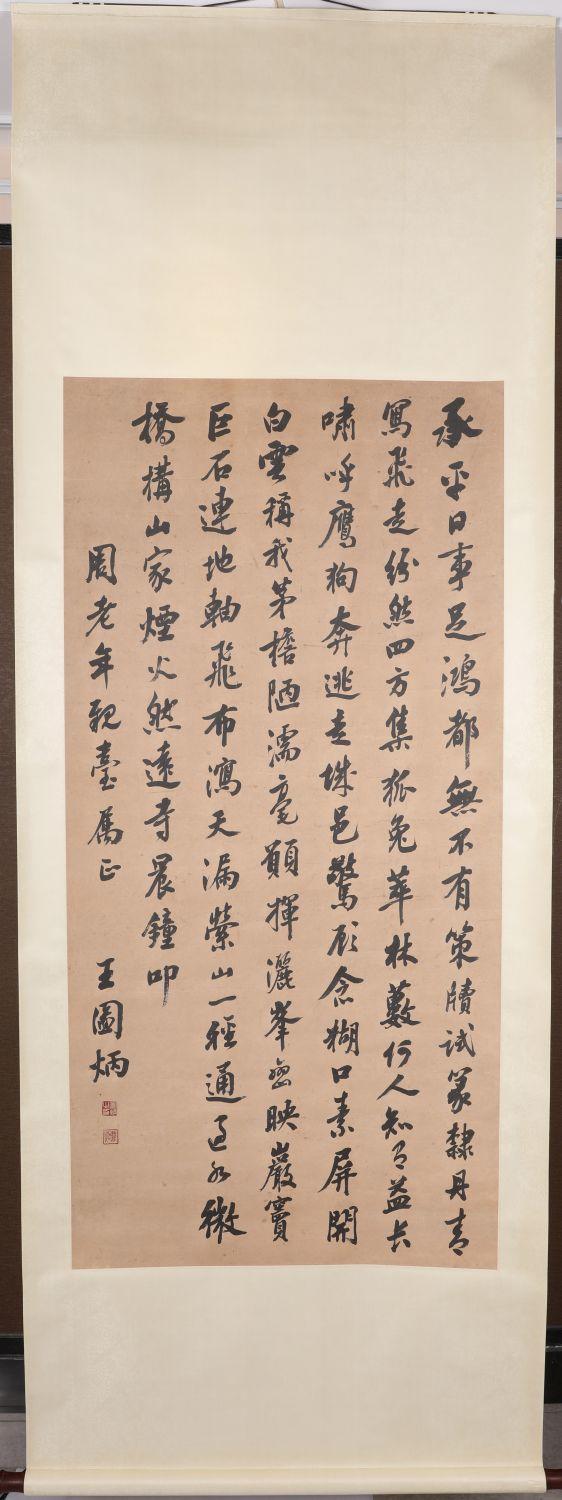 承平日事足鴻都無不有策牘試篆隸丹青
寫飛走紛然四方集狐兔萃林藪何人知有益長
嘯呼鷹狗奔逃走城邑驚顧念糊口素屏開
白雲稱我茅檐陋濡毫顛揮灑峯巒映巖竇
巨石連地軸飛布瀉天漏縈山一徑通過水微
橋構山家煙火然遠寺晨鐘叩
周老年親臺屬正
王圖炳